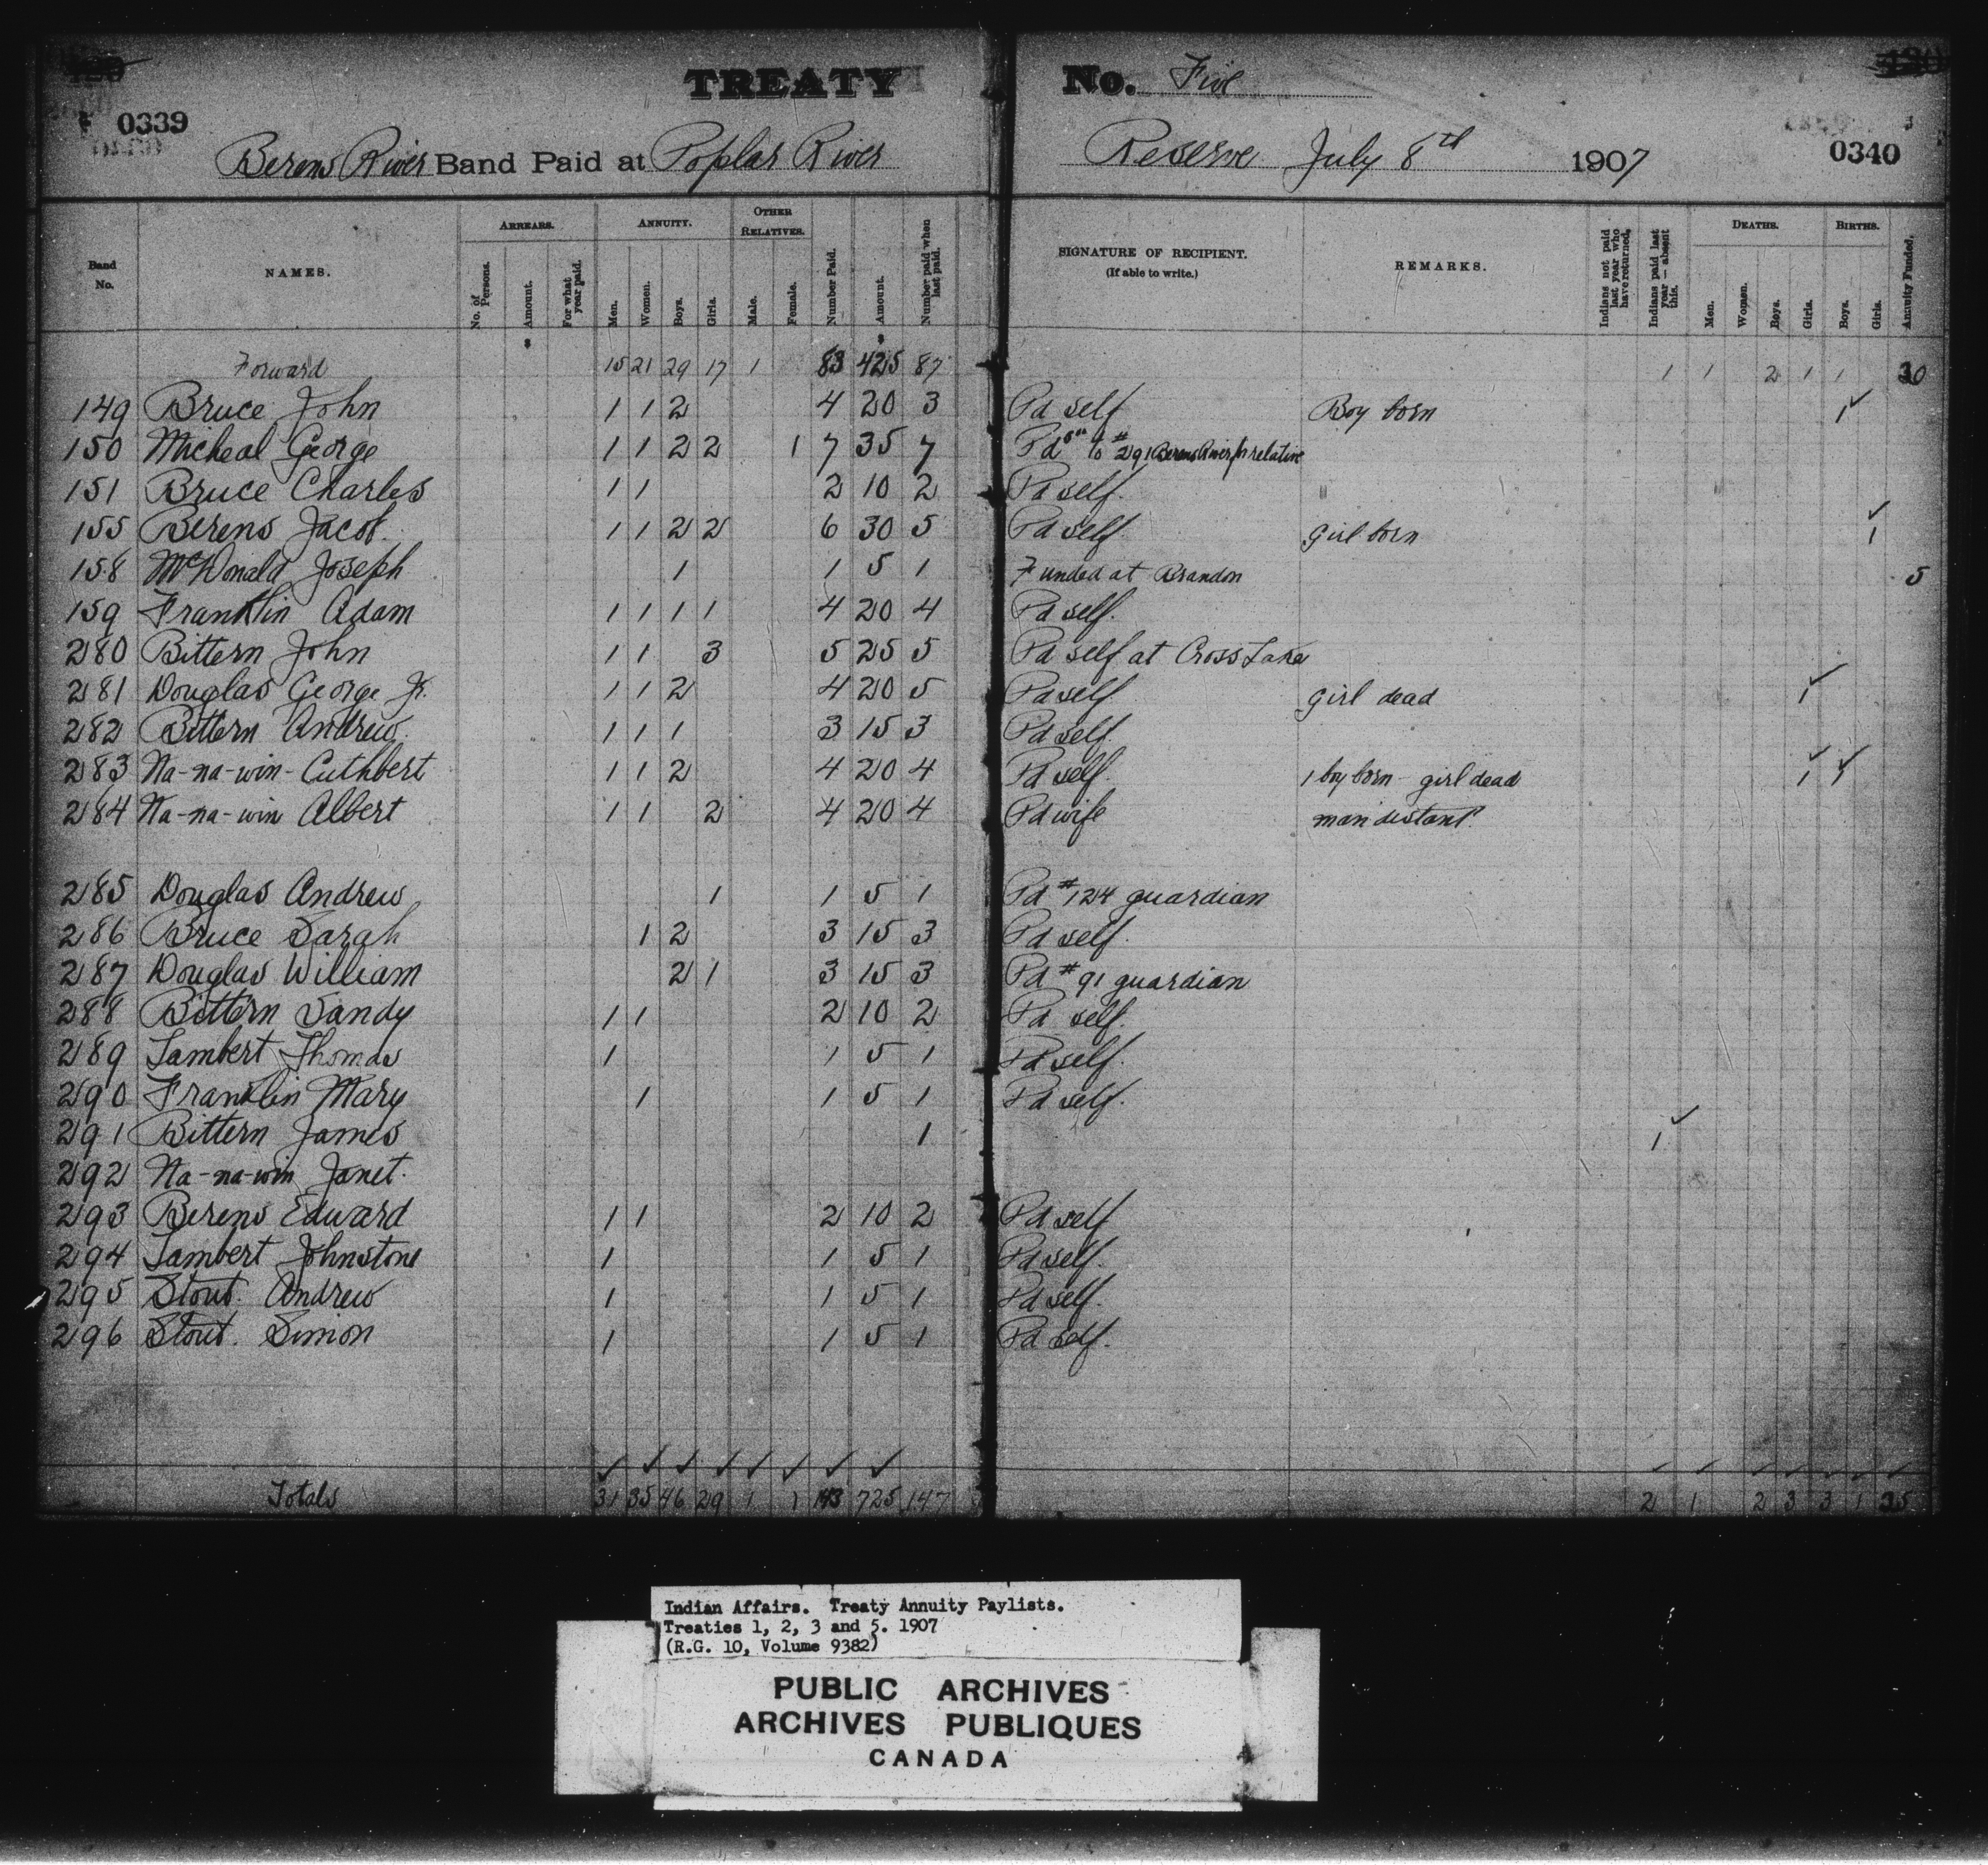 TREATY No. Five
0339
0340
Berens River Band Paid at Poplar River Reserve July 8th 1907
Band No. NAMES. ARREARS. No. of Persons. Amount. $ For what year paid. ANNUITY. Men. Women. Boys. Girls. OTHER RELATIVES. Male. Female. Number Paid. Amount. $ Number paid when last paid. SIGNATURE OF RECIPIENT. (If able to write.) REMARKS. Indians not paid last year who have returned. Indians paid last year — absent this. DEATHS. Men. Women. Boys. Girls. BIRTHS. Boys. Girls. Annuity Funded.
Forward 15 21 29 17 1 83 425 87 1 1 2 1 1
149 Bruce John 1 1 2 4 20 3 Pd self Boy born 1 ✓
150 Micheal George 1 1 2 2 1 7 35 7 Pd to #291 Berens River relative
151 Bruce Charles 1 1 2 10 2 Pd self.
155 Berens Jacob. 1 1 2 2 6 30 5 Pd self. Girl born 1 ✓
158 McDonald Joseph 1 1 5 1 Funded at Brandon 5
159 Franklin Adam 1 1 1 1 4 20 4 Pd self.
280 Bittern John 1 1 3 5 25 5 Pd self at Cross Lake
281 Douglas George Jr. 1 1 2 4 20 5 Pd self. Girl dead 1 ✓
282 Bittern Andrew. 1 1 1 3 15 3 Pd self.
283 Na-na-win-Cuthbert 1 1 2 4 20 4 Pd self. 1 boy born - girl dead 1 ✓ 1 ✓
284 Na-na-win Albert 1 1 2 4 20 4 Pd wife man distant.
285 Douglas Andrew 1 1 5 1 Pd #124 guardian
286 Bruce Sarah 1 2 3 15 3 Pd self.
287 Douglas William 2 1 3 15 3 Pd #91 guardian
288 Bittern Sandy 1 1 2 10 2 Pd self.
289 Lambert Thomas 1 1 5 1 Pd self.
290 Franklin Mary 1 1 5 1 Pd self.
291 Bittern James 1 1 ✓
292 Na-na-win Janet.
293 Berens Edward 1 1 2 10 2 Pd self
294 Lambert Johnstone 1 1 5 1 Pd self.
295 Stout. Andrew 1 1 5 1 Pd self.
296 Stout. Simon 1 1 5 1 Pd self.
✓ ✓ ✓ ✓ ✓ ✓ ✓ ✓ ✓ ✓ ✓ ✓ ✓ ✓ ✓
Totals 31 35 46 29 1 1 143 725 147 2 1 2 3 3 1
Indian Affairs. Treaty Annuity Paylists.
Treaties 1, 2, 3 and 5. 1907
(R.G. 10, Volume 9382)
PUBLIC ARCHIVES
ARCHIVES PUBLIQUES
CANADA